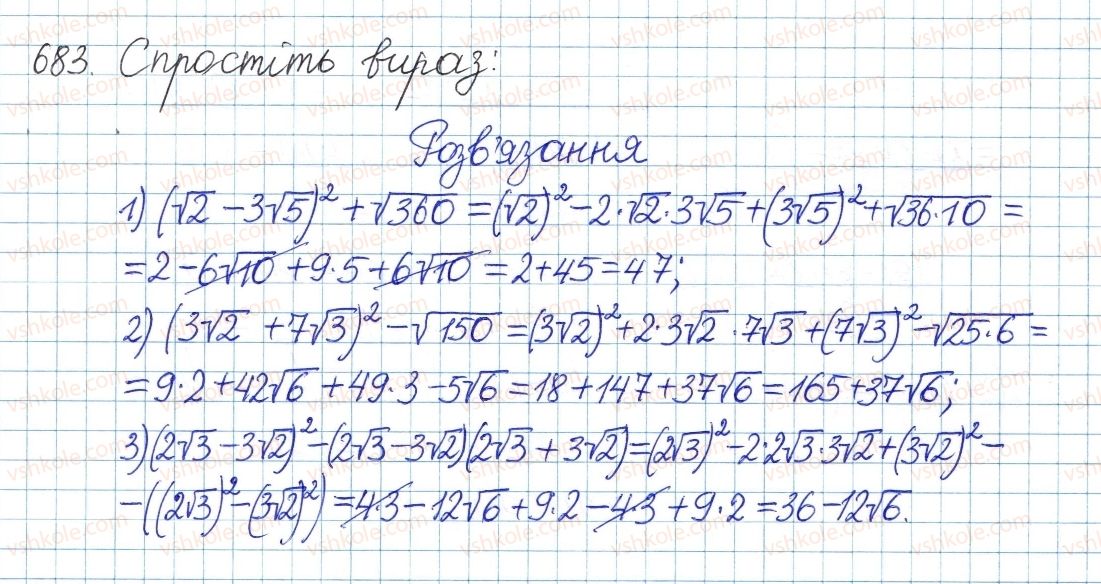 683. Спростіть вираз:
Розв'язання
1) (√2 - 3√5)² + √360 = (√2)² - 2·√2·3√5 + (3√5)² + √36·10 =
= 2 - 6√10 + 9·5 + 6√10 = 2 + 45 = 47;
2) (3√2 + 7√3)² - √150 = (3√2)² + 2·3√2·7√3 + (7√3)² - √25·6 =
= 9·2 + 42√6 + 49·3 - 5√6 = 18 + 147 + 37√6 = 165 + 37√6;
3) (2√3 - 3√2)² - (2√3 - 3√2)(2√3 + 3√2) = (2√3)² - 2·2√3·3√2 + (3√2)² -
- ((2√3)² - (3√2)²) = 4·3 - 12√6 + 9·2 - 4·3 + 9·2 = 36 - 12√6.